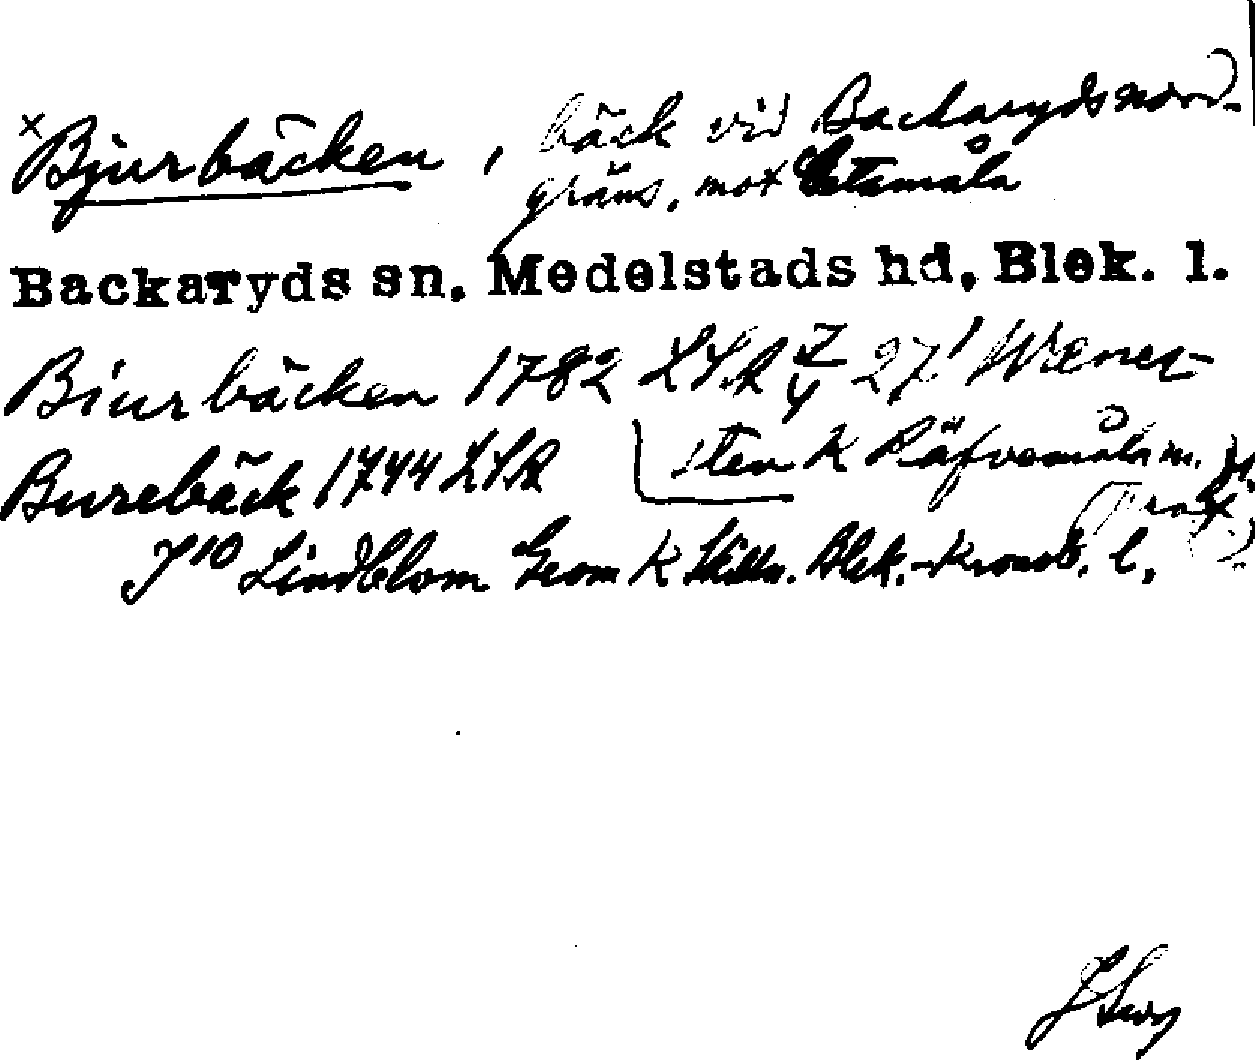 × Bjurbäcken, bäck vid Backaryds nord-
gräns, mot
Backaryds sn. Medelstads hd, Blek. l.
Biurbäcken 1782 LSA 27' Wæner-
sten K Räfvemåla m.
Burebäck 1744 LSA
J 10 Lindblom Geom K Blek.-Kronob. l.